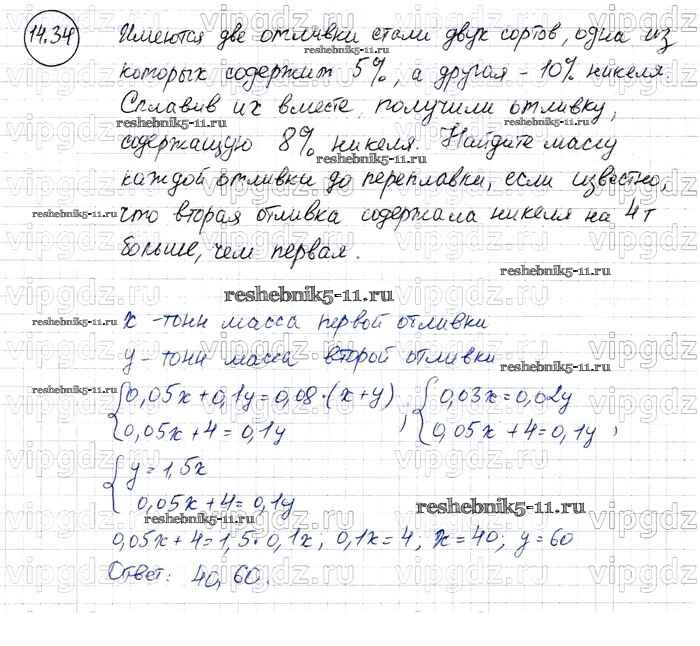 14.34 Имеются две отливки стали двух сортов, одна из
которых содержит 5%, а другая - 10% никеля.
Сплавив их вместе, получили отливку,
содержащую 8% никеля. Найдите массу
каждой отливки до переплавки, если известно,
что вторая отливка содержала никеля на 4т
больше, чем первая.
x - тонн масса первой отливки
y - тонн масса второй отливки
{0,05x + 0,1y = 0,08·(x+y) ; {0,03x = 0,02y
0,05x + 4 = 0,1y ; 0,05x + 4 = 0,1y ;
{y = 1,5x
0,05x + 4 = 0,1y
0,05x + 4 = 1,5·0,1x ; 0,1x = 4 ; x = 40 ; y = 60
Ответ: 40, 60.
vipgdz
reshebnik5-11.ru